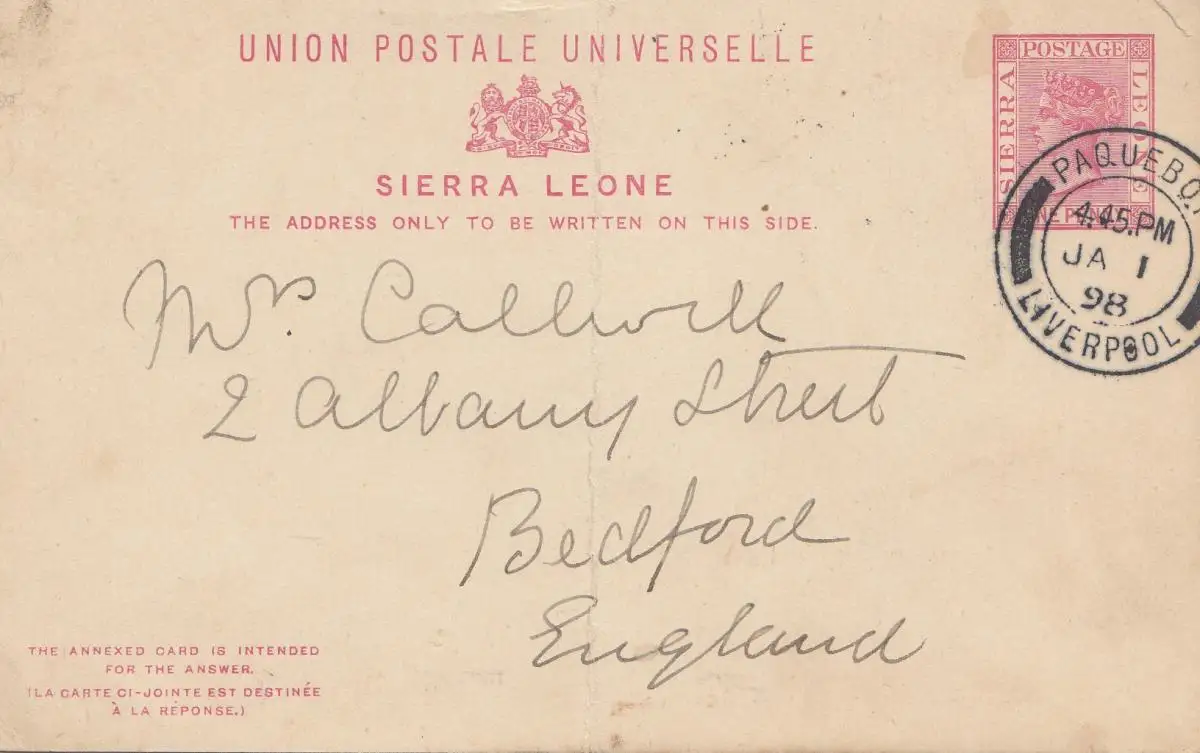 UNION POSTALE UNIVERSELLE
SIERRA LEONE
THE ADDRESS ONLY TO BE WRITTEN ON THIS SIDE.
POSTAGE
SIERRA
LEONE
ONE PENNY
PAQUEBOT
4.45.PM
JA 1
98
LIVERPOOL
Mrs. Callwell
2 Albany Street
Bedford
England
THE ANNEXED CARD IS INTENDED
FOR THE ANSWER.
(LA CARTE CI-JOINTE EST DESTINÉE
À LA RÉPONSE.)